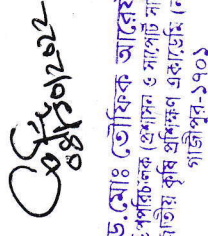 ০৪/১০/২০২২
ড. মোঃ তৌফিক আরেফ
উপপরিচালক (প্রশাসন ও সাপোর্ট সা
জাতীয় কৃষি প্রশিক্ষণ একাডেমি (ন
গাজীপুর-১৭০১